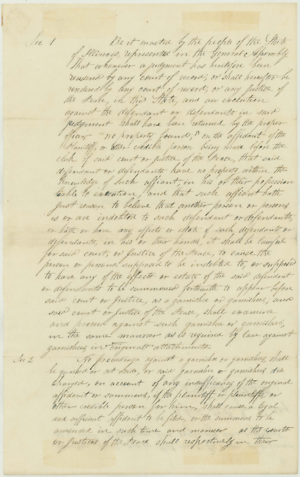 Sec 1 Be it enacted by the people of the State
of Illinois, represented in the General Assembly
That whenever a judgement has heretofore been
rendered by any court of record, or shall hereafter be
rendered by any court of record, or any justice of
the Peace, in this State, and an execution
against the defendant or defendants in such
judgement shall have been returned by the proper
officer "no property found," on the affidavit of the
plaintiff, or other credible person being made before the
clerk of said court or justice of the Peace, that said
defendant or defendants have no property within the
knowledge of such affiant, in his or their possession
liable to execution, and that such affiant hath
just reason to believe that another person or persons
is or are indebted to such defendant or defendants,
or hath or have any effects or estate of such defendant or
defendants, in his or their hands, it shall be lawful
for said court, or justice of the Peace, to cause the
person or persons supposed to be indebted to, or supposed
to have any of the effects or estate of the said defendant
or defendants to be summoned forthwith to appear before
said court or justice, as a garnishee or garnishees, and
said court or justice of the Peace, shall examine
and proceed against such garnishee or garnishees,
in the same manner as is required by law against
garnishees in original attachments.
Sec 2 No proceedings against a garnishee or garnishees shall
be quashed or set aside, or said garnishee or garnishees dis
charged, on account of any insufficiency of the original
affidavit or summons, if the plaintiff or plaintiffs or
other credible person for them, shall cause a legal
and sufficient affidavit to be filed, or the summons to be
amended, in such time and manner as the courts
or justices of the Peace shall respectively in their